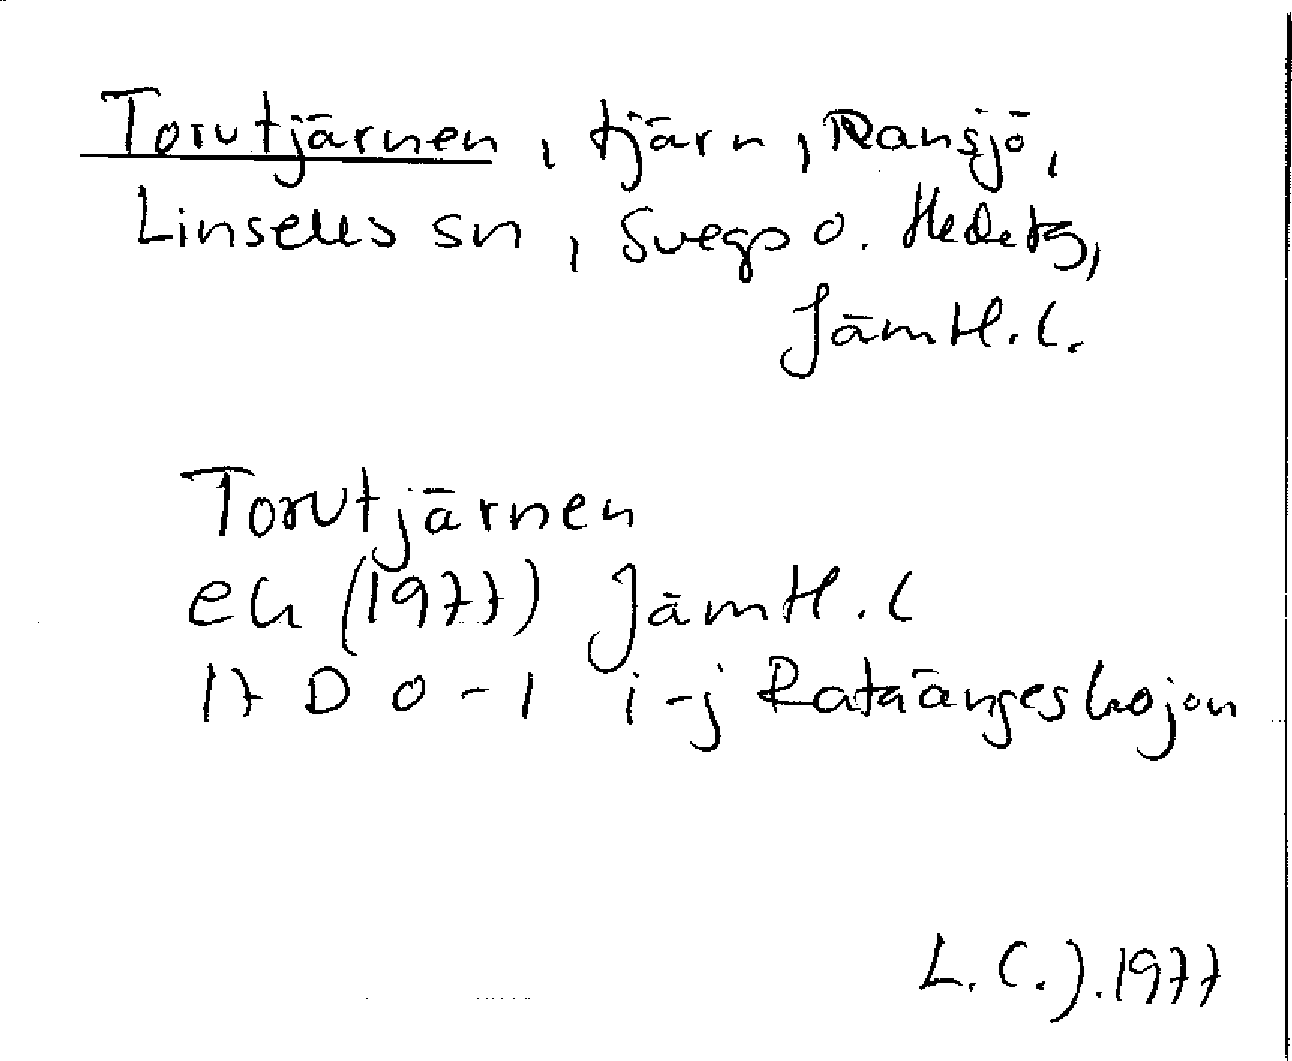 Torvtjärnen, tjärn, Ransjö,
Linsells sn, Svegs o. Hede tg,
Jämtl. l.
Torvtjärnen
ek (1977) Jämtl. l
17 D 0-1 i-j Rataängeskojan
L. C. J. 1977